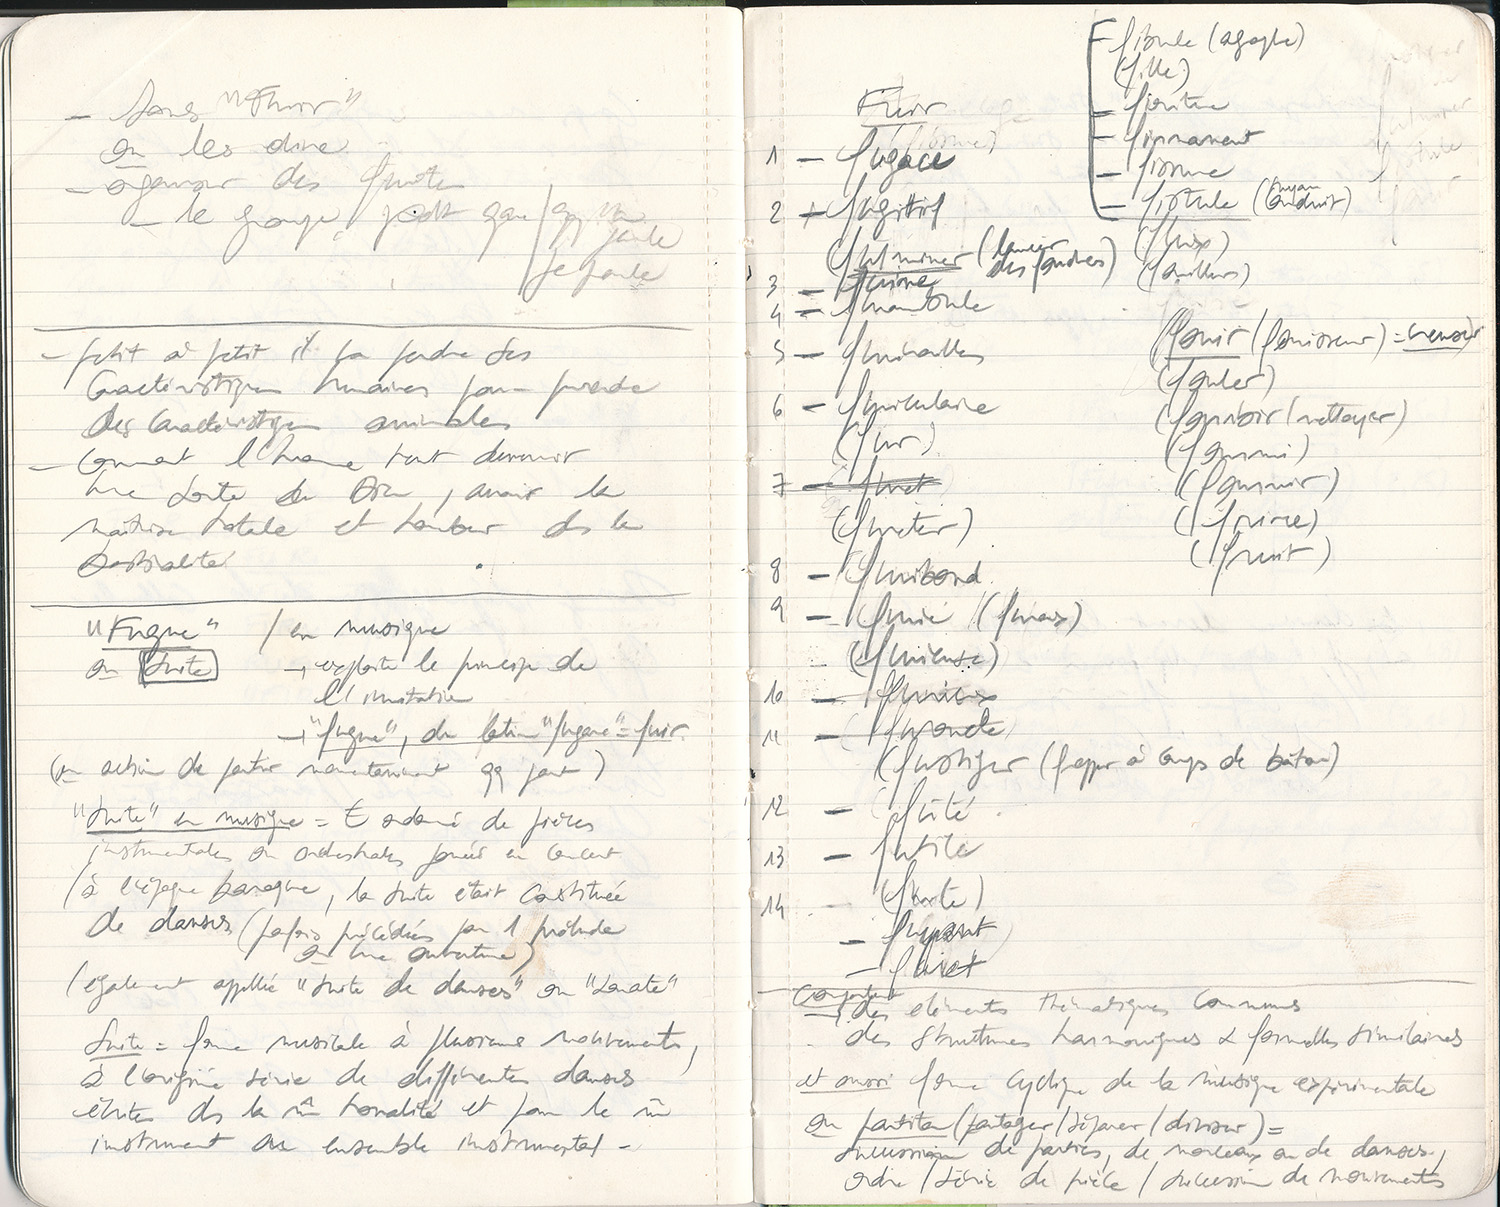 - dans "Fluor"
ou les dire
- organiser des fuites
- le groupe
je parle
- petit à petit il va perdre ses
caractéristiques humaines pour prendre
des caractéristiques animales
- comment l'homme peut devenir
une sorte de Dieu, avoir la
maîtrise totale et tomber ds la
bestialité
"Fugue" / en musique
ou Suite → exploite le principe de
l'imitation
→ "fugue", du latin "fugare" = fuir
(ou action de partir momentanément qq part)
"Suite" en musique = E ordonné de pièces
instrumentales ou orchestrales jouées en concert
/ à l'époque baroque, la suite était constituée
de danses (parfois précédées par 1 prélude
ou une ouverture)
(également appelée "suite de danses" ou "sonate"
Suite = forme musicale à plusieurs mouvements,
à l'origine série de différentes danses
écrites ds la m̂ tonalité et pour le m̂
instrument ou ensemble instrumental -
Fuir
1 - fugace
2 + fugitif
(fulminer (lancer
des foudres)
3 -
4 - funambule
5 - funérailles
6 - funiculaire
(fur)
7 - furet
(fureter)
8 - furibond
9 - furie (furax)
(furieuse)
10 - furieux
11 - furoncle
(fustiger (frapper à coups de bâton)
12 - fûté
13 - futile
14 - (fuite)
- fuyant
- furet
- fibule (agrafe)
(fille)
- firmament
- fistule (tuyau
conduit)
(flux)
(fouir / fouisseur) = creuser
(fouler)
(fourbir (nettoyer)
(fourmi)
(fournir)
(fruit)
comportent
→ des éléments thématiques communs
des structures harmoniques & formelles similaires
et aussi forme cyclique de la musique expérimentale
ou partita (partager / séparer / diviser) =
succession de parties, de morceaux ou de danses,
ordre / série de pièce / succession de mouvements